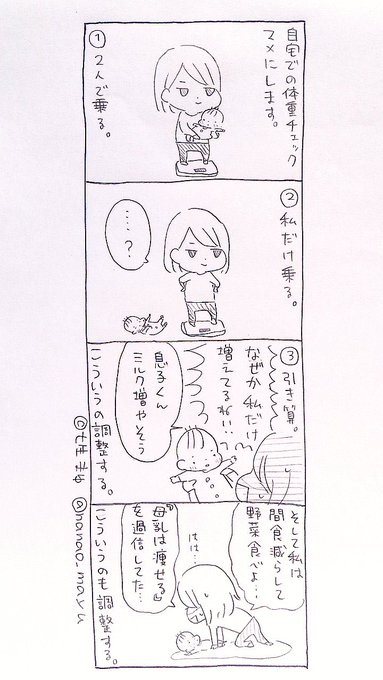 自宅での体重チェック
マメにします。
①
2人で乗る。
②
私だけ乗る。
……?
③
引き算。
なぜか私だけ
増えてるわい…
息子くん
ミルク増やそう
こういうの調整する。
そして私は
間食減らして
野菜食べよ…
はは…
『母乳は痩せる』
を過信してた…
こういうのも調整する。
@nanao.mayu